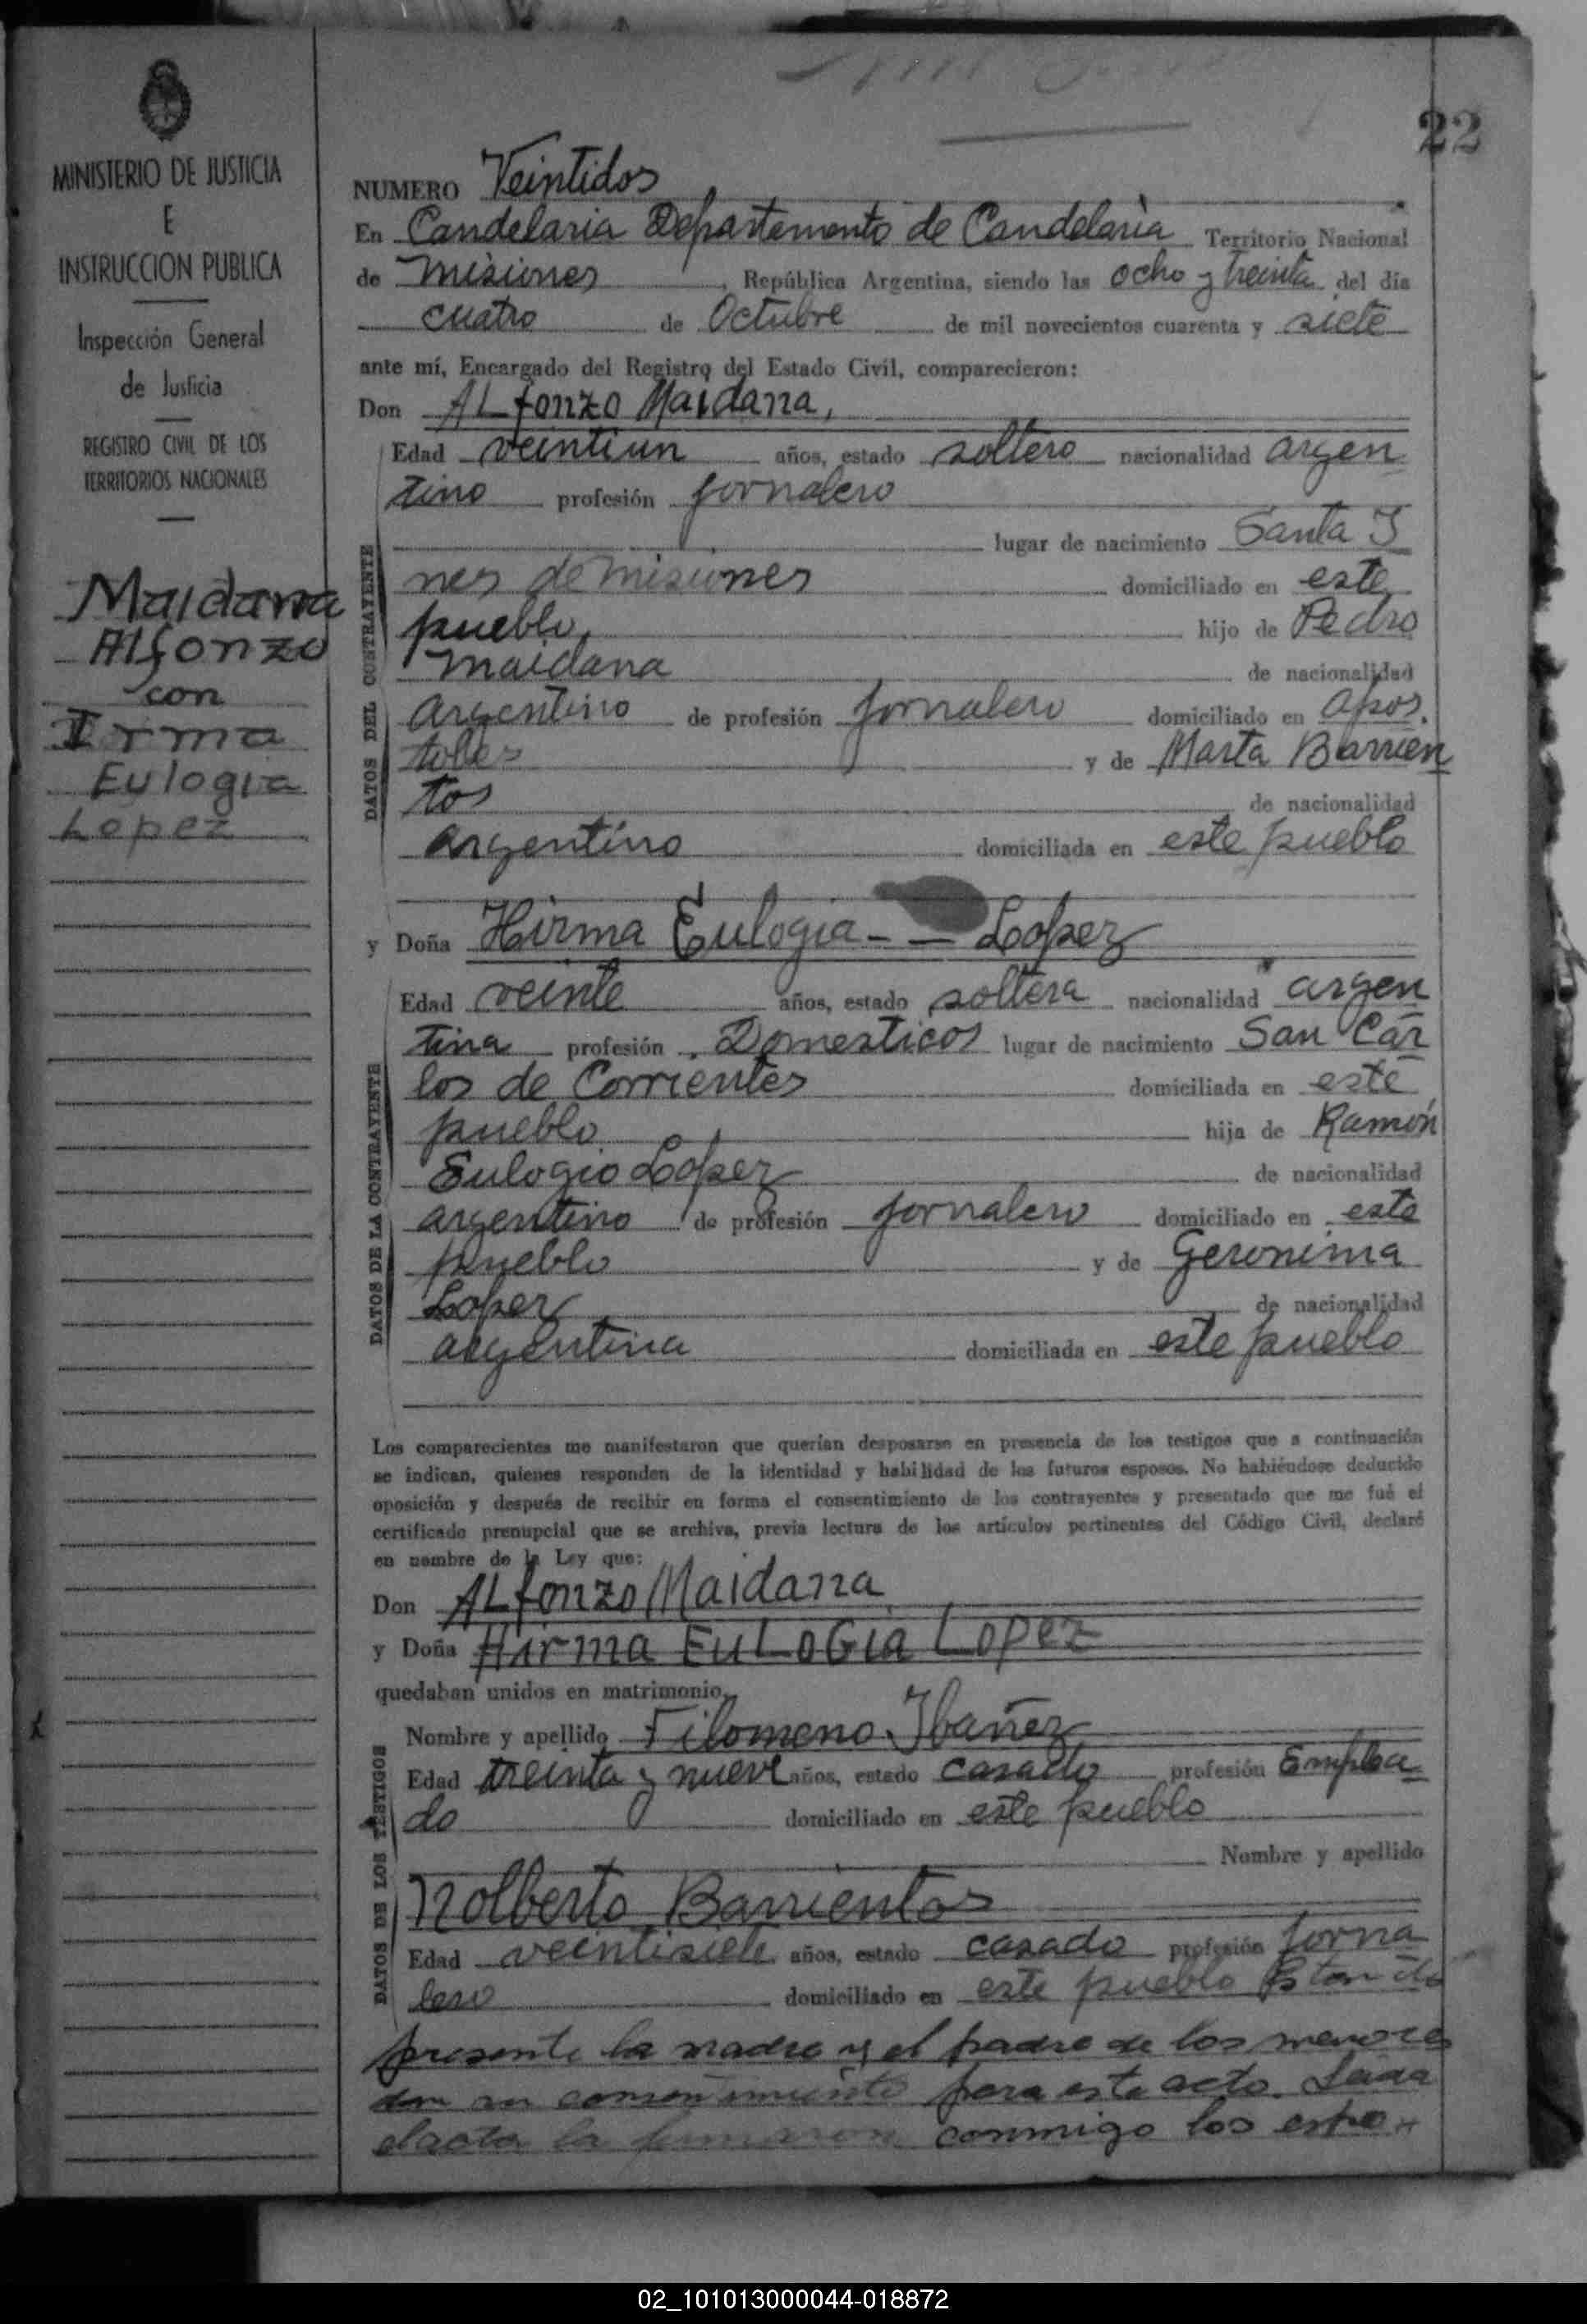 22
MINISTERIO DE JUSTICIA
E
INSTRUCCION PUBLICA
Inspección General
de Justicia
REGISTRO CIVIL DE LOS
TERRITORIOS NACIONALES
Maidana
Alfonzo
con
Irma
Eulogia
Lopez
NUMERO Veintidos
En Candelaria Departamento de Candelaria Territorio Nacional
de Misiones, República Argentina, siendo las ocho y treinta del día
cuatro de Octubre de mil novecientos cuarenta y siete
ante mí, Encargado del Registro del Estado Civil, comparecieron:
Don ALfonzo Maidana,
DATOS DEL CONTRAYENTE
Edad veintiun años, estado soltero nacionalidad argen
tino profesión jornalero
lugar de nacimiento Santa I
nes de misiones domiciliado en este
pueblo, hijo de Pedro
maidana de nacionalidad
argentino de profesión jornalero domiciliado en apos.
toles y de Marta Barrien
tos de nacionalidad
argentino domiciliada en este pueblo
y Doña Hirma Eulogia - - Lopez
DATOS DE LA CONTRAYENTE
Edad veinte años, estado soltera nacionalidad argen
tina profesión Domesticos lugar de nacimiento San Car
los de Corrientes domiciliada en este
pueblo hija de Ramón
Eulogio Lopez de nacionalidad
argentino de profesión jornalero domiciliado en este
pueblo y de Geronima
Lopez de nacionalidad
argentina domiciliada en este pueblo
Los comparecientes me manifestaron que querían desposarse en presencia de los testigos que a continuación
se indican, quienes responden de la identidad y habilidad de los futuros esposos. No habiéndose deducido
oposición y después de recibir en forma el consentimiento de los contrayentes y presentado que me fué el
certificado prenupcial que se archiva, previa lectura de los artículos pertinentes del Código Civil, declaré
en nombre de la Ley que:
Don ALfonzo Maidana
y Doña Hirma EuLoGia Lopez
quedaban unidos en matrimonio.
DATOS DE LOS TESTIGOS
Nombre y apellido Filomeno Ibañez
Edad treinta y nueve años, estado casado profesión Emplea
do domiciliado en este pueblo
Nombre y apellido
Nolberto Barrientos
Edad veintisiete años, estado casado profesión jorna
lero domiciliado en este pueblo Estando
presente la madre y el padre de los menores
dan su para este acto. Leida
el acta la firmaron conmigo los espo
02_101013000044-018872